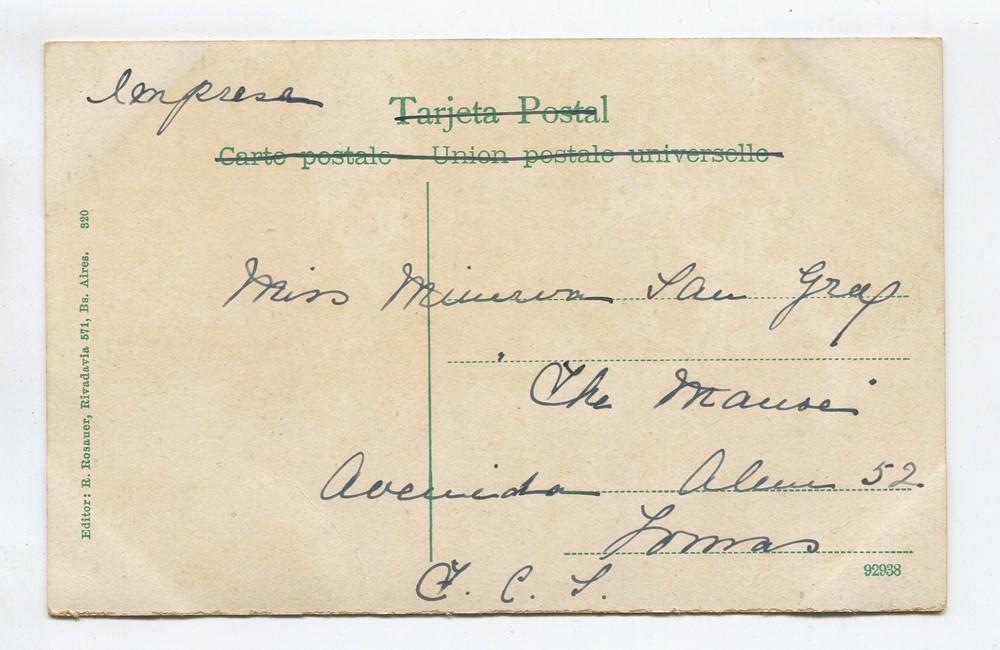 Impresa
Tarjeta Postal
Carte postale — Union postale universelle
Editor: R. Rosauer, Rivadavia 571, Bs. Aires. 320
Miss Minerva
"The Manse"
Avenida Alem 52
Lomas
F. C. S.
92938